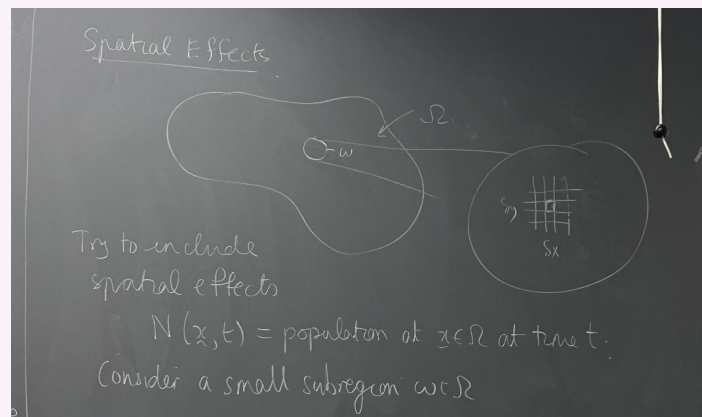 Spatial Effects
Ω.
ω
δy
δx
Try to include
spatial effects
N(x̰,t) = population at x̰∈Ω at time t.
Consider a small subregion ω⊂Ω